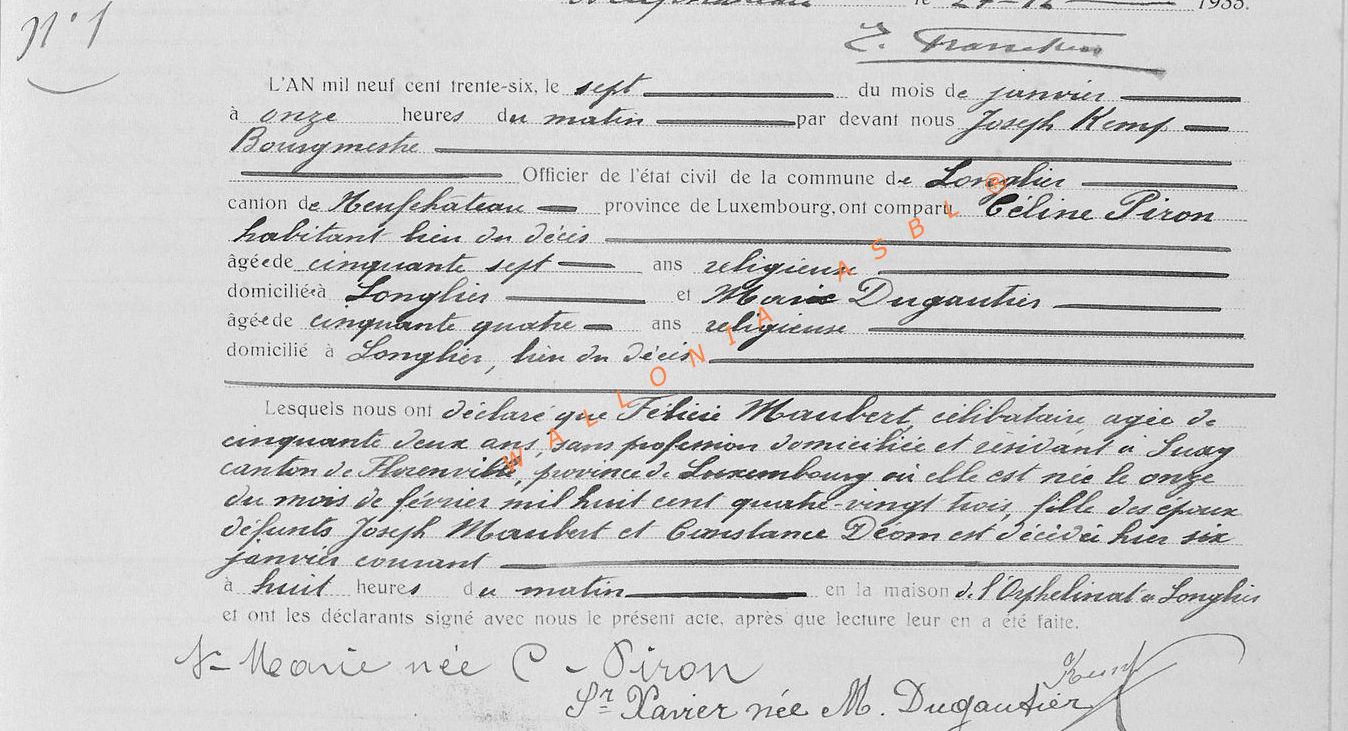 le 27-12 1935.
N° 1
L'AN mil neuf cent trente-six, le sept du mois de janvier
à onze heures du matin par devant nous Joseph Kemp
Bourgmestre
Officier de l'état civil de la commune de Longlier
canton de Neufchateau province de Luxembourg, ont comparu Céline Piron
habitant lieu du décis
âgée de cinquante sept ans religieuse
domiciliée à Longlier et Marie Dugautier
âgée de cinquante quatre ans religieuse
domicilié à Longlier, lieu du décis
Lesquels nous ont déclaré que Félicie Maubert, célibataire, agée de
cinquante deux ans, sans profession domiciliée et residant à Suxy
canton de Florenville, province de Luxembourg où elle est née le onze
du mois de février mil huit cent quatre-vingt trois, fille des époux
défunts Joseph Maubert et Constance Déom est décédée hier six
janvier courant
à huit heures du matin en la maison de l'Orphelinat à Longlier
et ont les déclarants signé avec nous le présent acte, après que lecture leur en a été faite.
Sr Marie née C - Piron
Kemp
Sr Xavier née M. Dugautier
WALLONIA ASBL ©